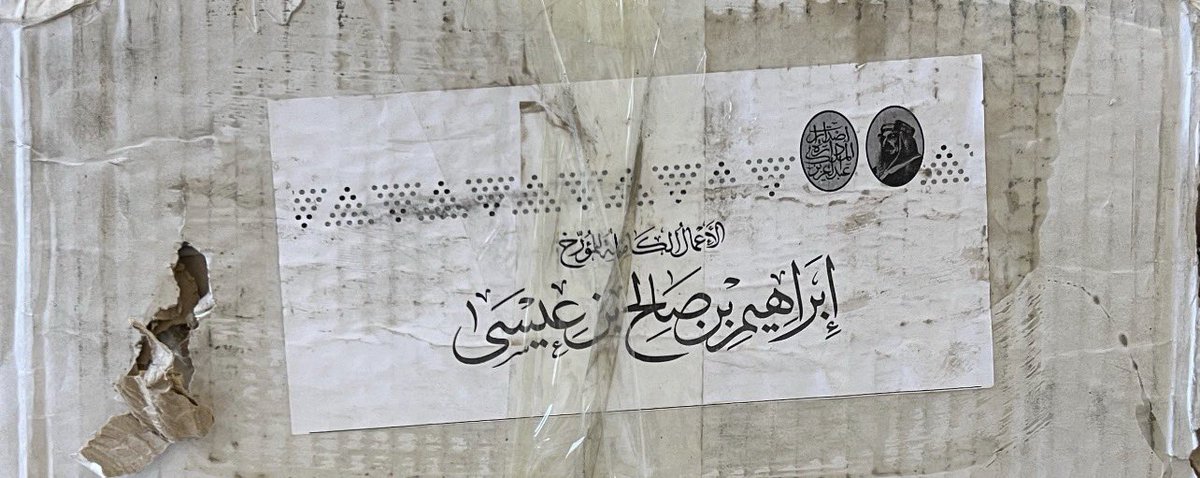 إصدارات
دارة الملك
عبدالعزيز
الأَعْمَالُ الكَامِلَةُ لِلمُؤَرِّخ
إِبْرَاهِيمِ بْنِ صَالِحِ بْنِ عِيْسَى